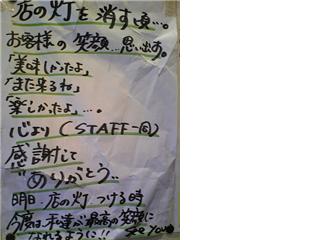 店の灯を消す頃…。
お客様の笑顔…思い出す。
「美味しかったよ」
「また来るね」
「楽しかったよ」…。
心より（STAFF一同）
感謝して
"ありがとう"
明日、店の灯つける時
今度は、私達が最高の笑顔に
なれるように!! See You